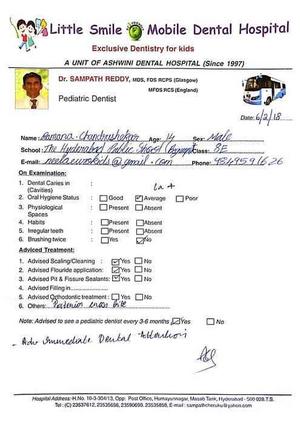 Little Smile Mobile Dental Hospital
Exclusive Dentistry for kids
A UNIT OF ASHWINI DENTAL HOSPITAL (Since 1997)
Dr. SAMPATH REDDY, MDS, FDS RCPS (Glasgow)
MFDS RCS (England)
Pediatric Dentist
Date: 6/2/18
Name: Ramana Chandrashekar Age: 14 Sex: Male
School: The Hyderabad Public School Class: 8E
E-mail: @gmail.com Phone:
On Examination:
1. Dental Caries in (Cavities) :
2. Oral Hygiene Status : Good Average Poor
3. Physiological Spaces : Present Absent
4. Habits : Present Absent
5. Irregular teeth : Present Absent
6. Brushing twice : Yes No
Adviced Treatment:
1. Advised Scaling/Cleaning : Yes No
2. Advised Flouride application: Yes No
3. Advised Pit & Fissure Sealants: Yes No
4. Advised Filling in
5. Advised Orthodontic treatment : Yes No
6. Others: Posterior cross bite
Note: Advised to see a pediatric dentist every 3-6 months Yes No
- Adv Immediate Dental Attention
Hospital Address :H.No. 10-3-304/13, Opp. Post Office, Humayunnagar, Masab Tank, Hyderabad - 500 028.T.S.
Tel : (C) 23537612, 23535658, 23590699, 23535858, E-mail : sampathcheruku@yahoo.com